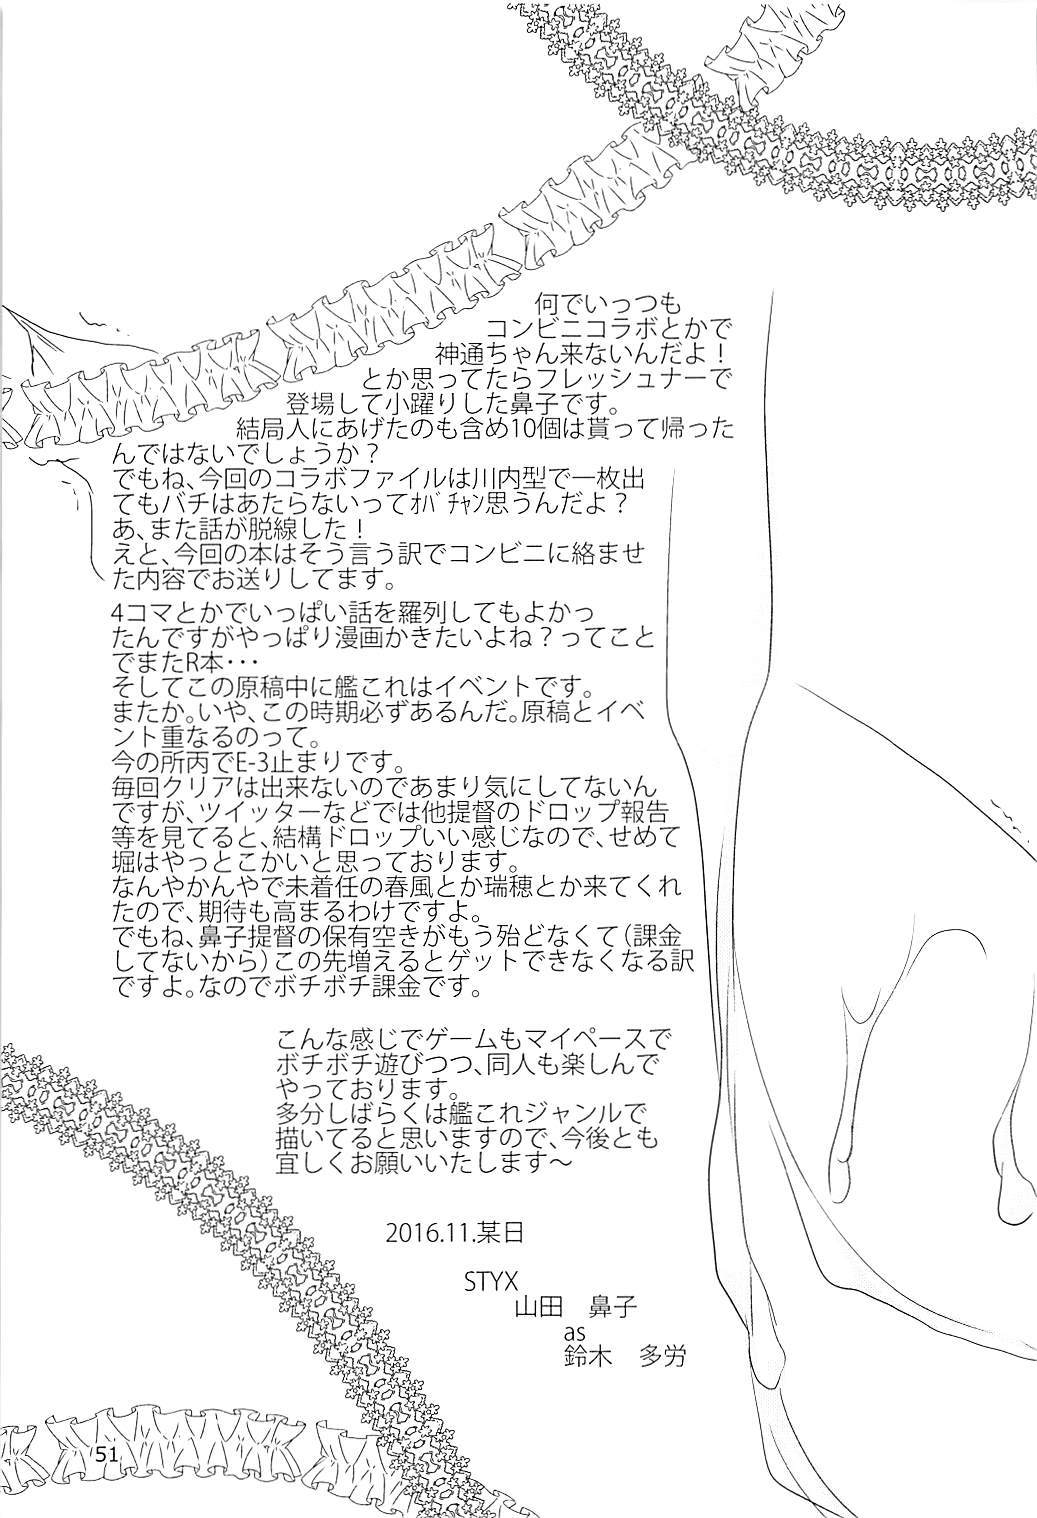 何でいっつも
コンビニコラボとかで
神通ちゃん来ないんだよ！
とか思ってたらフレッシュナーで
登場して小躍りした鼻子です。
結局人にあげたのも含め10個は貰って帰った
んではないでしょうか？
でもね、今回のコラボファイルは川内型で一枚出
てもバチはあたらないってｵﾊﾞﾁｬﾝ思うんだよ？
あ、また話が脱線した！
えと、今回の本はそう言う訳でコンビニに絡ませ
た内容でお送りしてます。
4コマとかでいっぱい話を羅列してもよかっ
たんですがやっぱり漫画かきたいよね？ってこと
でまたR本･･･
そしてこの原稿中に艦これはイベントです。
またか。いや、この時期必ずあるんだ。原稿とイベ
ント重なるのって。
今の所丙でE-3止まりです。
毎回クリアは出来ないのであまり気にしてないん
ですが、ツイッターなどでは他提督のドロップ報告
等を見てると、結構ドロップいい感じなので、せめて
堀はやっとこかいと思っております。
なんやかんやで未着任の春風とか瑞穂とか来てくれ
たので、期待も高まるわけですよ。
でもね、鼻子提督の保有空きがもう殆どなくて（課金
してないから）この先増えるとゲットできなくなる訳
ですよ。なのでボチボチ課金です。
こんな感じでゲームもマイペースで
ボチボチ遊びつつ、同人も楽しんで
やっております。
多分しばらくは艦これジャンルで
描いてると思いますので、今後とも
宜しくお願いいたします～
2016.11.某日
STYX
山田　鼻子
as
鈴木　多労
51